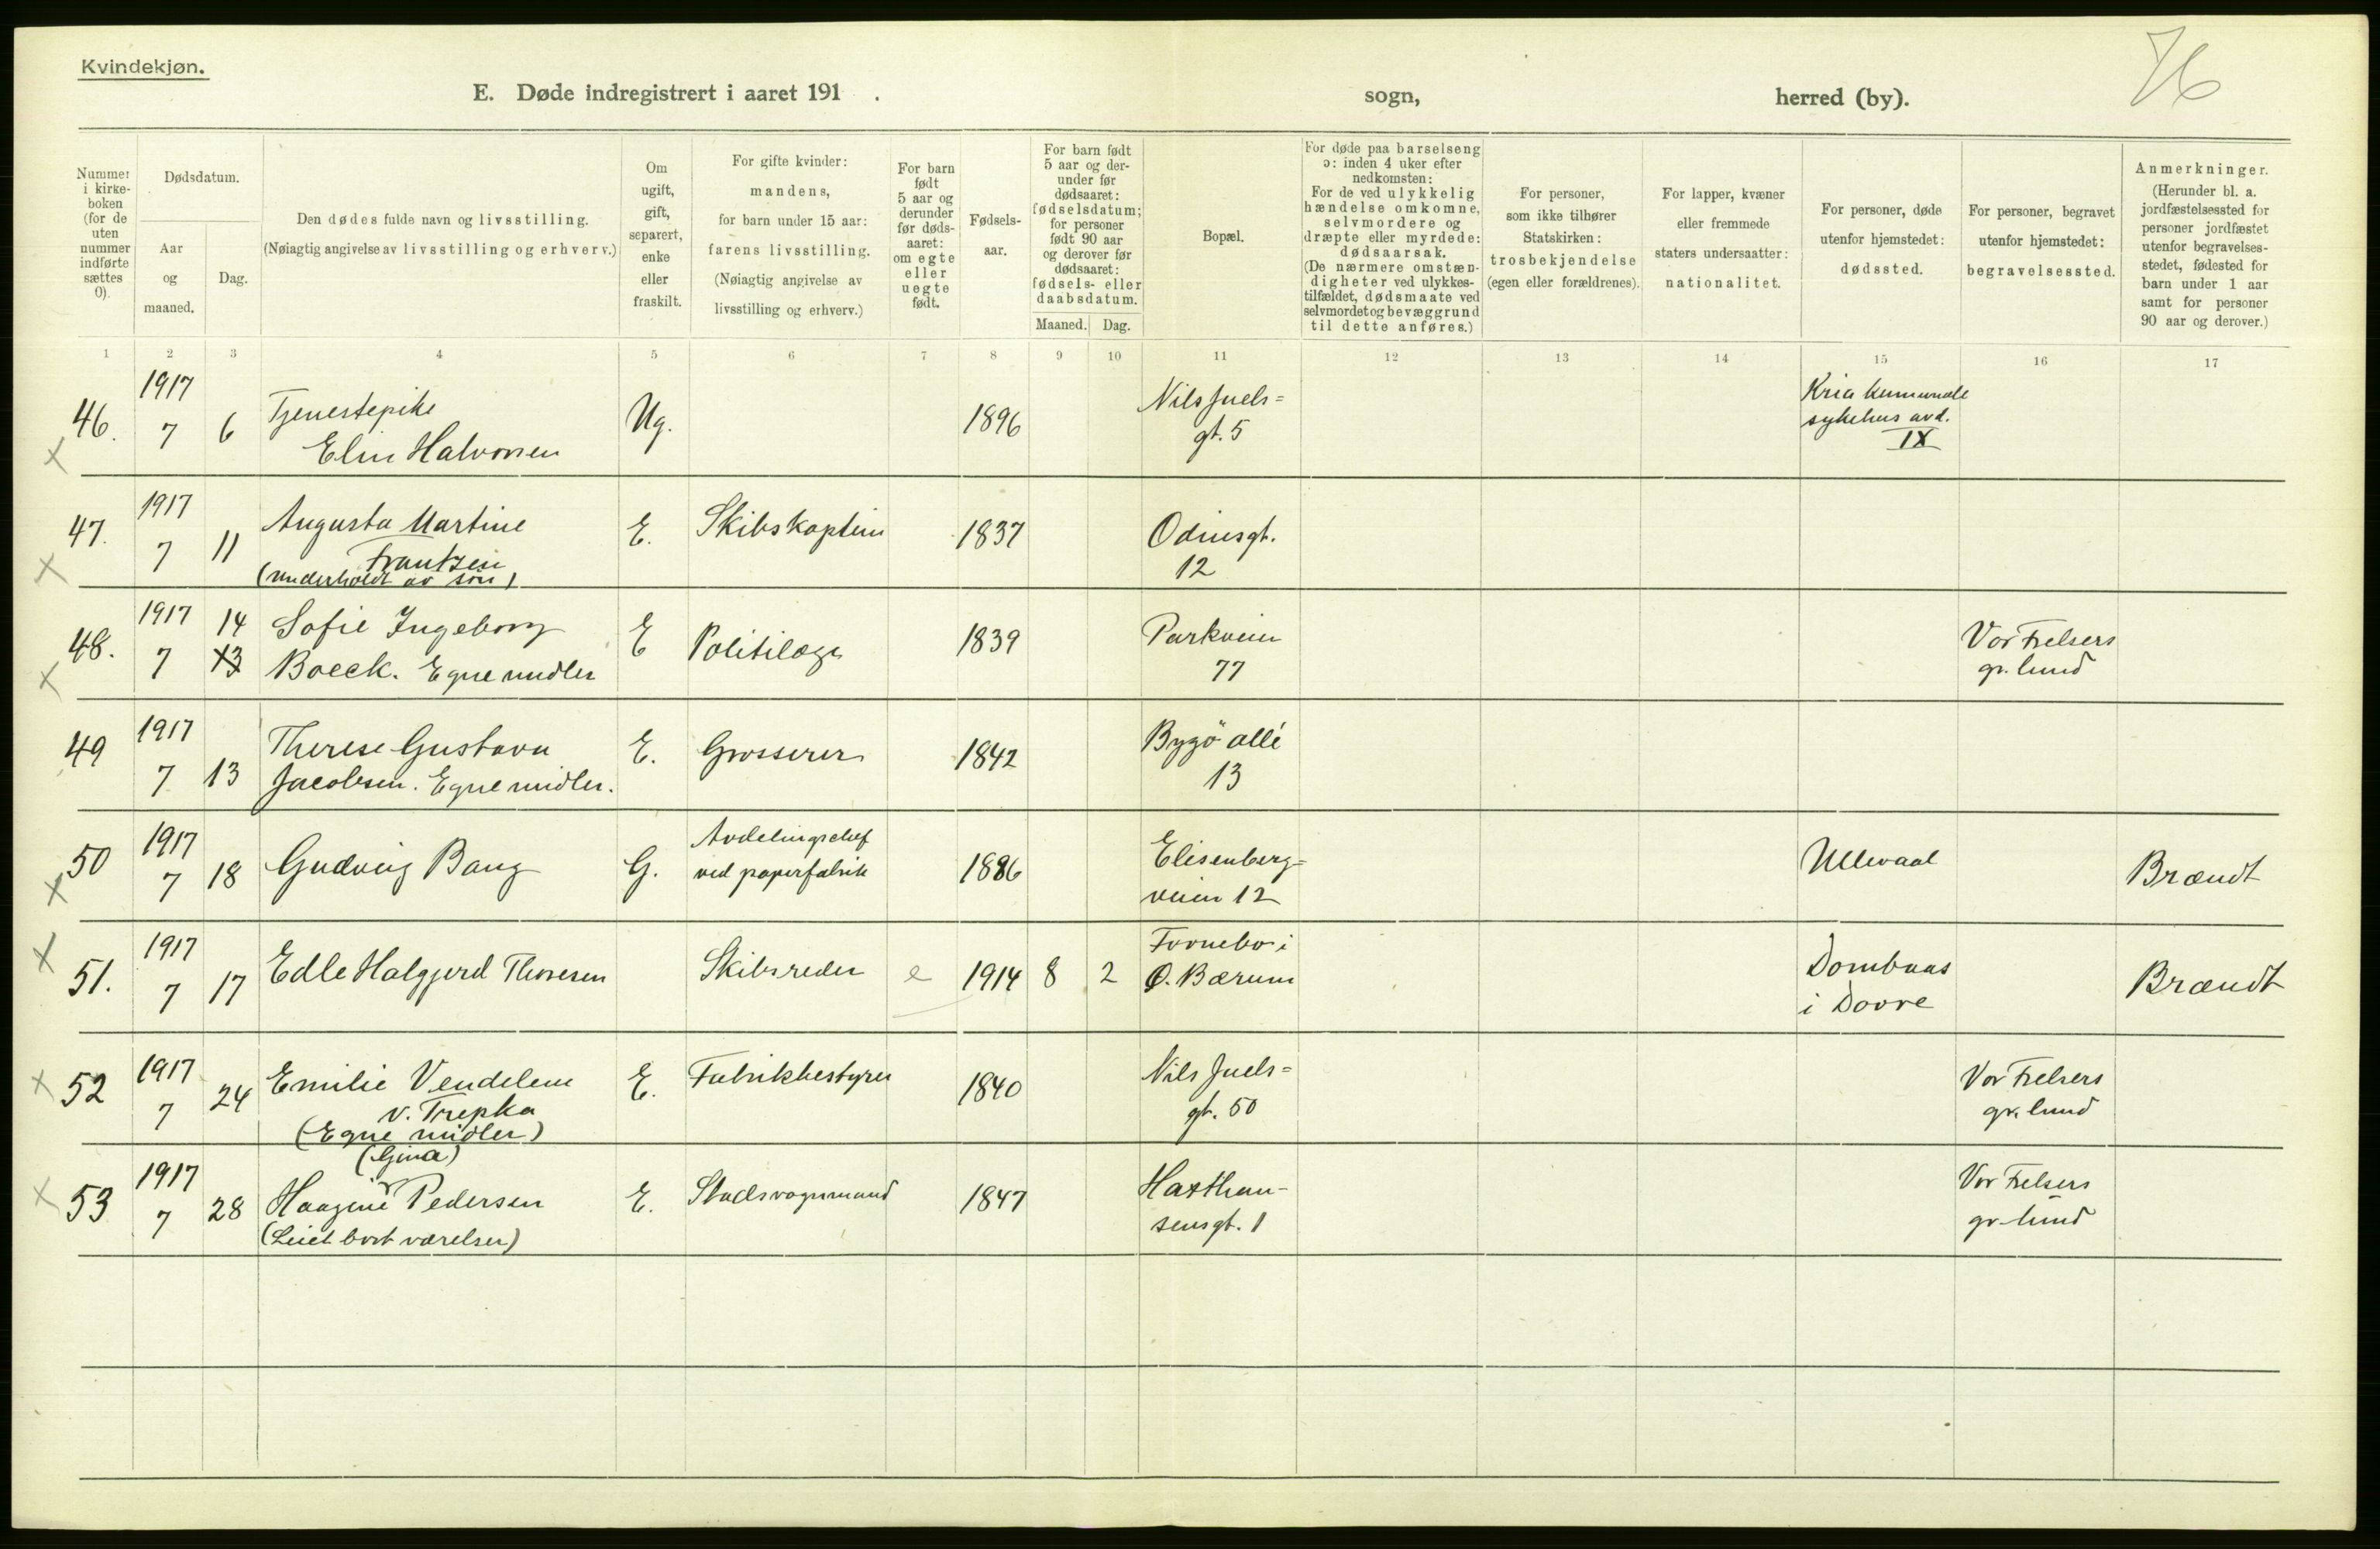 Kvindekjøn.
76
E. Døde indregistrert i aaret 191 . sogn, herred (by).
Nummer i kirkeboken (for de uten nummer indførte sættes 0).
Dødsdatum.
Aar og maaned.
Dag.
Den dødes fulde navn og livsstilling.
(Nøiagtig angivelse av livsstilling og erhverv.)
Om ugift, gift, separert, enke eller fraskilt.
For gifte kvinder: mandens, for barn under 15 aar: farens livsstilling.
(Nøiagtig angivelse av livsstilling og erhverv.)
For barn født 5 aar og derunder før dødsaaret: om egte eller uegte født.
Fødselsaar.
For barn født 5 aar og derunder før dødsaaret: fødselsdatum; for personer født 90 aar og derover før dødsaaret: fødsels- eller daabsdatum.
Maaned. Dag.
Bopæl.
For døde paa barselseng ɔ: inden 4 uker efter nedkomsten:
For de ved ulykkelig hændelse omkomne, selvmordere og dræpte eller myrdede: dødsaarsak.
(De nærmere omstændigheter ved ulykkestilfældet, dødsmaate ved selvmordet og bevæggrund til dette anføres.)
For personer, som ikke tilhører Statskirken: trosbekjendelse (egen eller forældrenes).
For lapper, kvæner eller fremmede staters undersaatter: nationalitet.
For personer, døde utenfor hjemstedet: dødssted.
For personer, begravet utenfor hjemstedet: begravelsessted.
Anmerkninger.
(Herunder bl. a. jordfæstelsessted for personer jordfæstet utenfor begravelsesstedet, fødested for barn under 1 aar samt for personer 90 aar og derover.)
1 2 3 4 5 6 7 8 9 10 11 12 13 14 15 16 17
46. 1917 7 6 Tjenestepike Elin Halvorsen Ug. 1896 Nils Juels= gt. 5 Kria kommunale sykehus avd. IX
47. 1917 7 11 Augusta Martine Frantzen (underholdt av søn) E. Skibskaptein 1837 Odinsgt. 12
48. 1917 7 14 13 Sofie Ingeborg Boeck. Egne midler E Politilæge 1839 Parkveien 77 Vor Frelsers gr.lund
49 1917 7 13 Therese Gustava Jacobsen. Egne midler. E. Grosserer 1842 Bygdö allé 13
50 1917 7 18 Gudveig Bang G. Avdelingschef ved papirfabrik 1886 Elisenberg= veien 12 Ullevaal Brændt
51. 1917 7 17 Edle Halgjerd Thoresen Skibsreder e 1914 8 2 Fornebo i Ø. Bærum Dombaas i Dovre Brændt
52 1917 7 24 Emilie Vendelene v. Trepka (Egne midler) E. Fabrikbestyrer 1840 Nils Juels= gt. 50 Vor Frelsers gr.lund
53 1917 7 28 (Gina) Haagine Pedersen (Leiet bort værelser) E. Stadsvognmand 1847 Haxthau- sensgt. 1 Vor Frelsers gr.lund